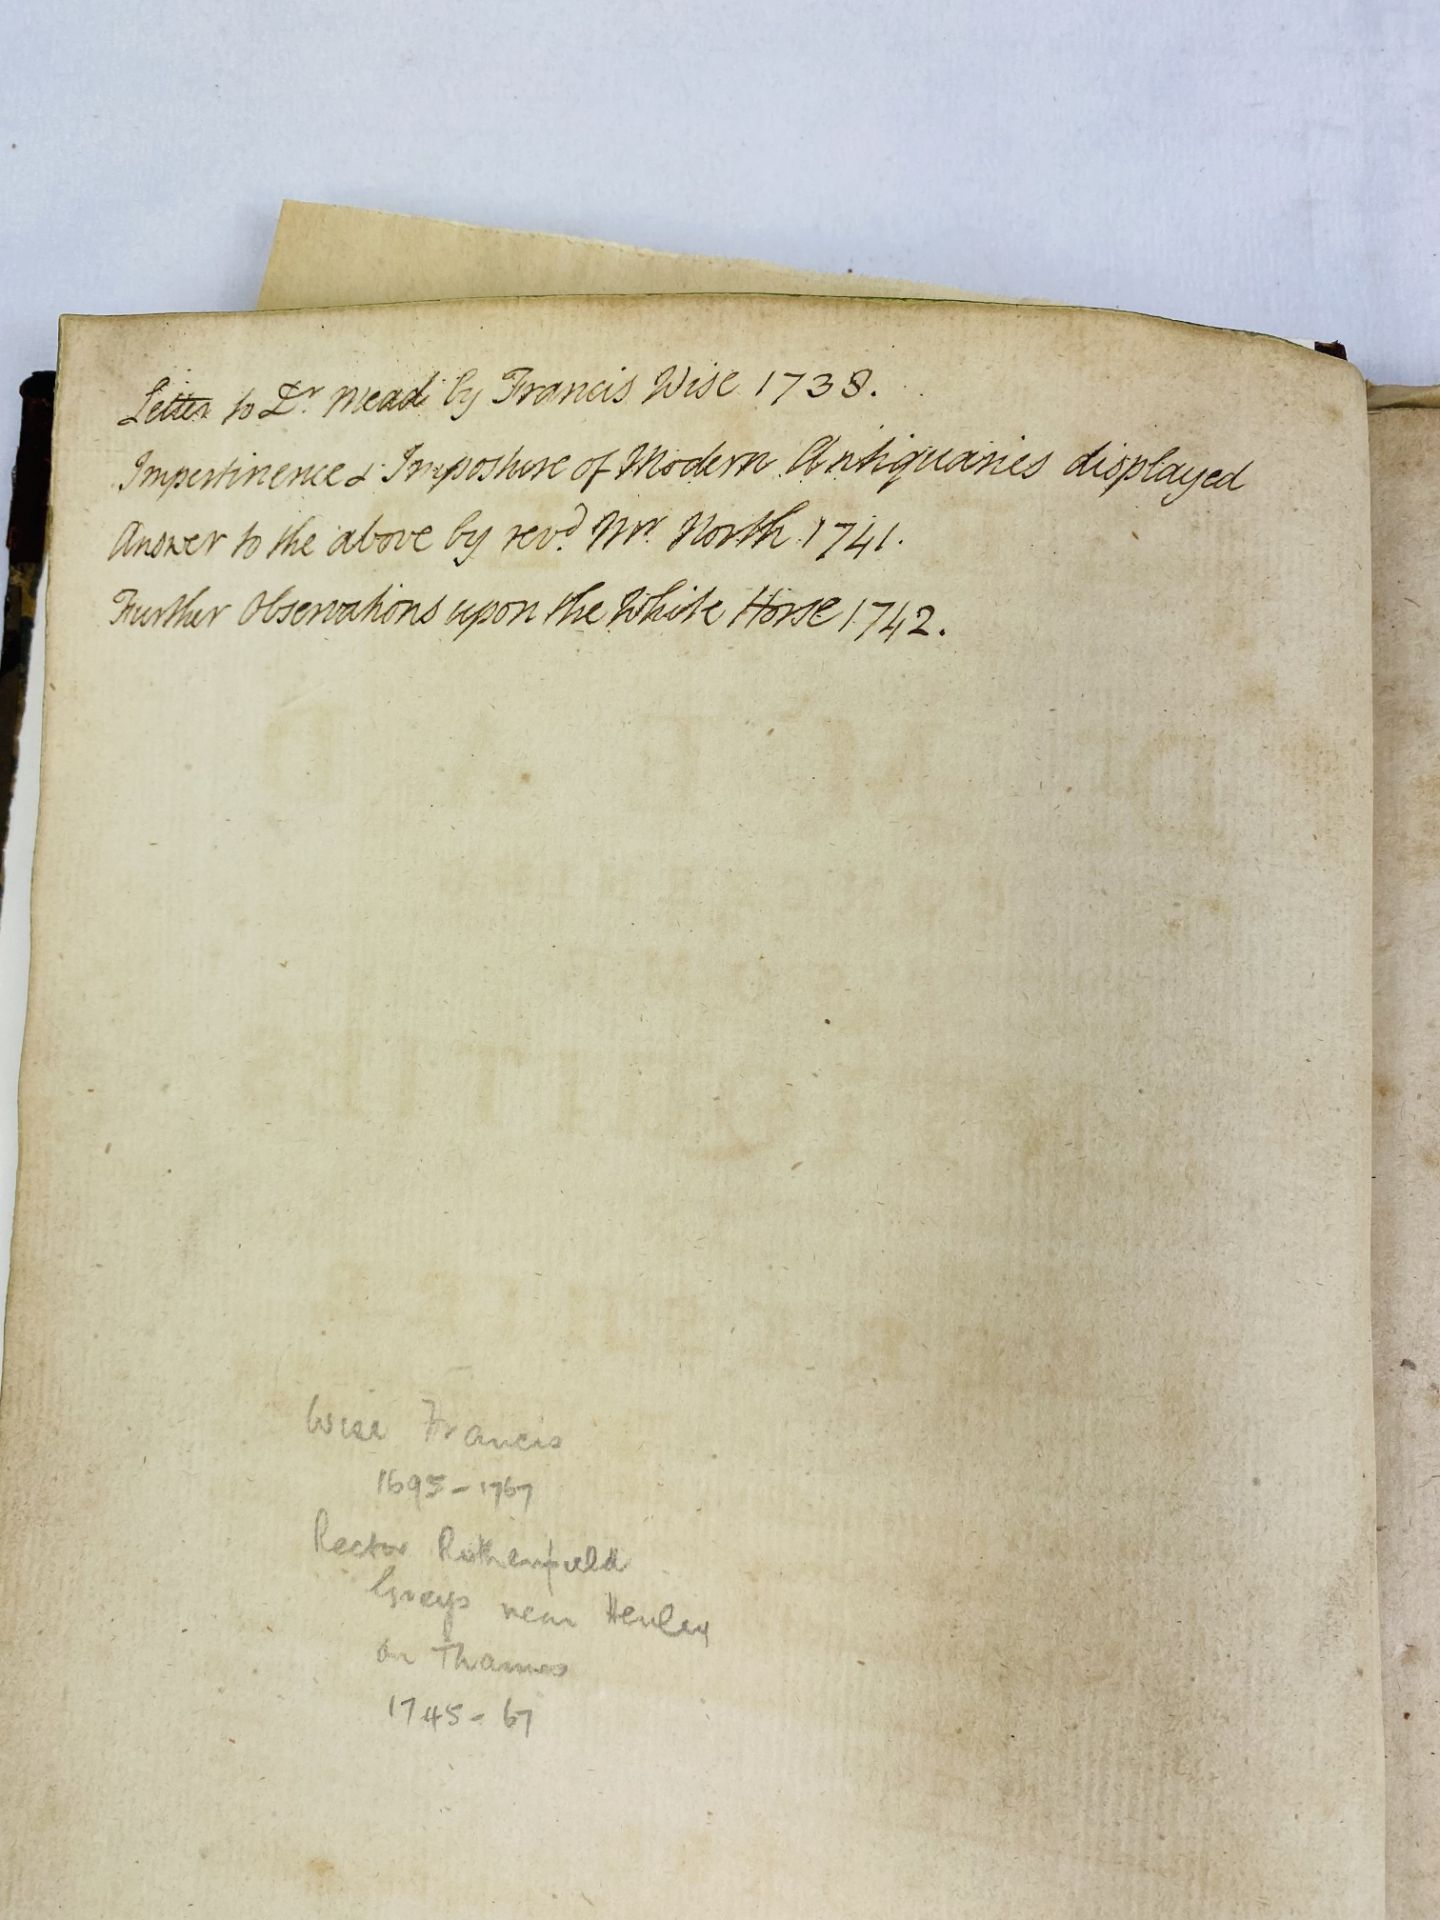 Letter to Dr Mead by Francis Wise 1738.
Impertinence & Imposture of Modern Antiquaries displayed
Answer to the above by revd. Mr. North 1741.
Further Observations upon the White Horse 1742.
Wise Francis
1695-1767
Rector Rotherfield
Greys near Henley
on Thames
1745-67